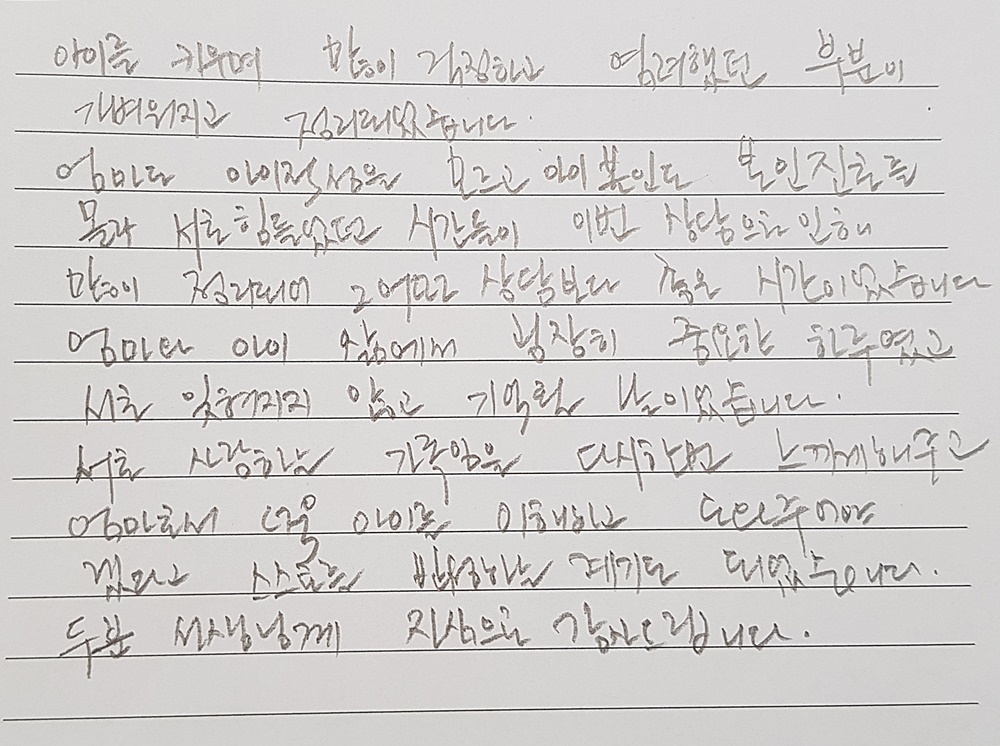 아이를 키우며 많이 걱정하고 염려했던 부분이
가벼워지고 정리되었습니다.
엄마도 아이적성을 모르고 아이 본인도 본인진로를
몰라 서로 힘들었던 시간들이 이번 상담으로 인해
많이 정리되어 그 어떤 상담보다 좋은 시간이었습니다
엄마와 아이 삶에서 굉장히 중요한 하루였고
서로 잊혀지지 않고 기억될 날이었습니다.
서로 사랑하는 가족임을 다시한번 느끼게해주고
엄마로서 더욱 아이를 이해하고 도와주어야
겠다고 스스로를 반성하는 계기도 되었습니다.
두분 선생님께 진심으로 감사드립니다.